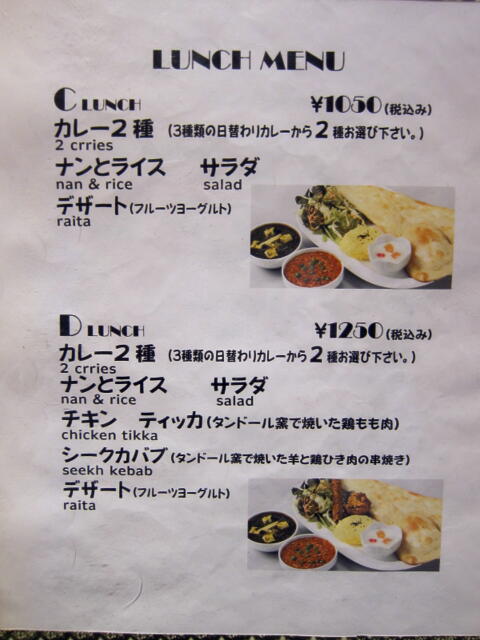 LUNCH MENU
C LUNCH ¥1050(税込み)
カレー2種 (3種類の日替わりカレーから2種お選び下さい。)
2 crries
ナンとライス サラダ
nan & rice salad
デザート(フルーツヨーグルト)
raita
D LUNCH ¥1250(税込み)
カレー2種 (3種類の日替わりカレーから2種お選び下さい。)
2 crries
ナンとライス サラダ
nan & rice salad
チキン ティッカ(タンドール窯で焼いた鶏もも肉)
chicken tikka
シークカバブ(タンドール窯で焼いた羊と鶏ひき肉の串焼き)
seekh kebab
デザート(フルーツヨーグルト)
raita